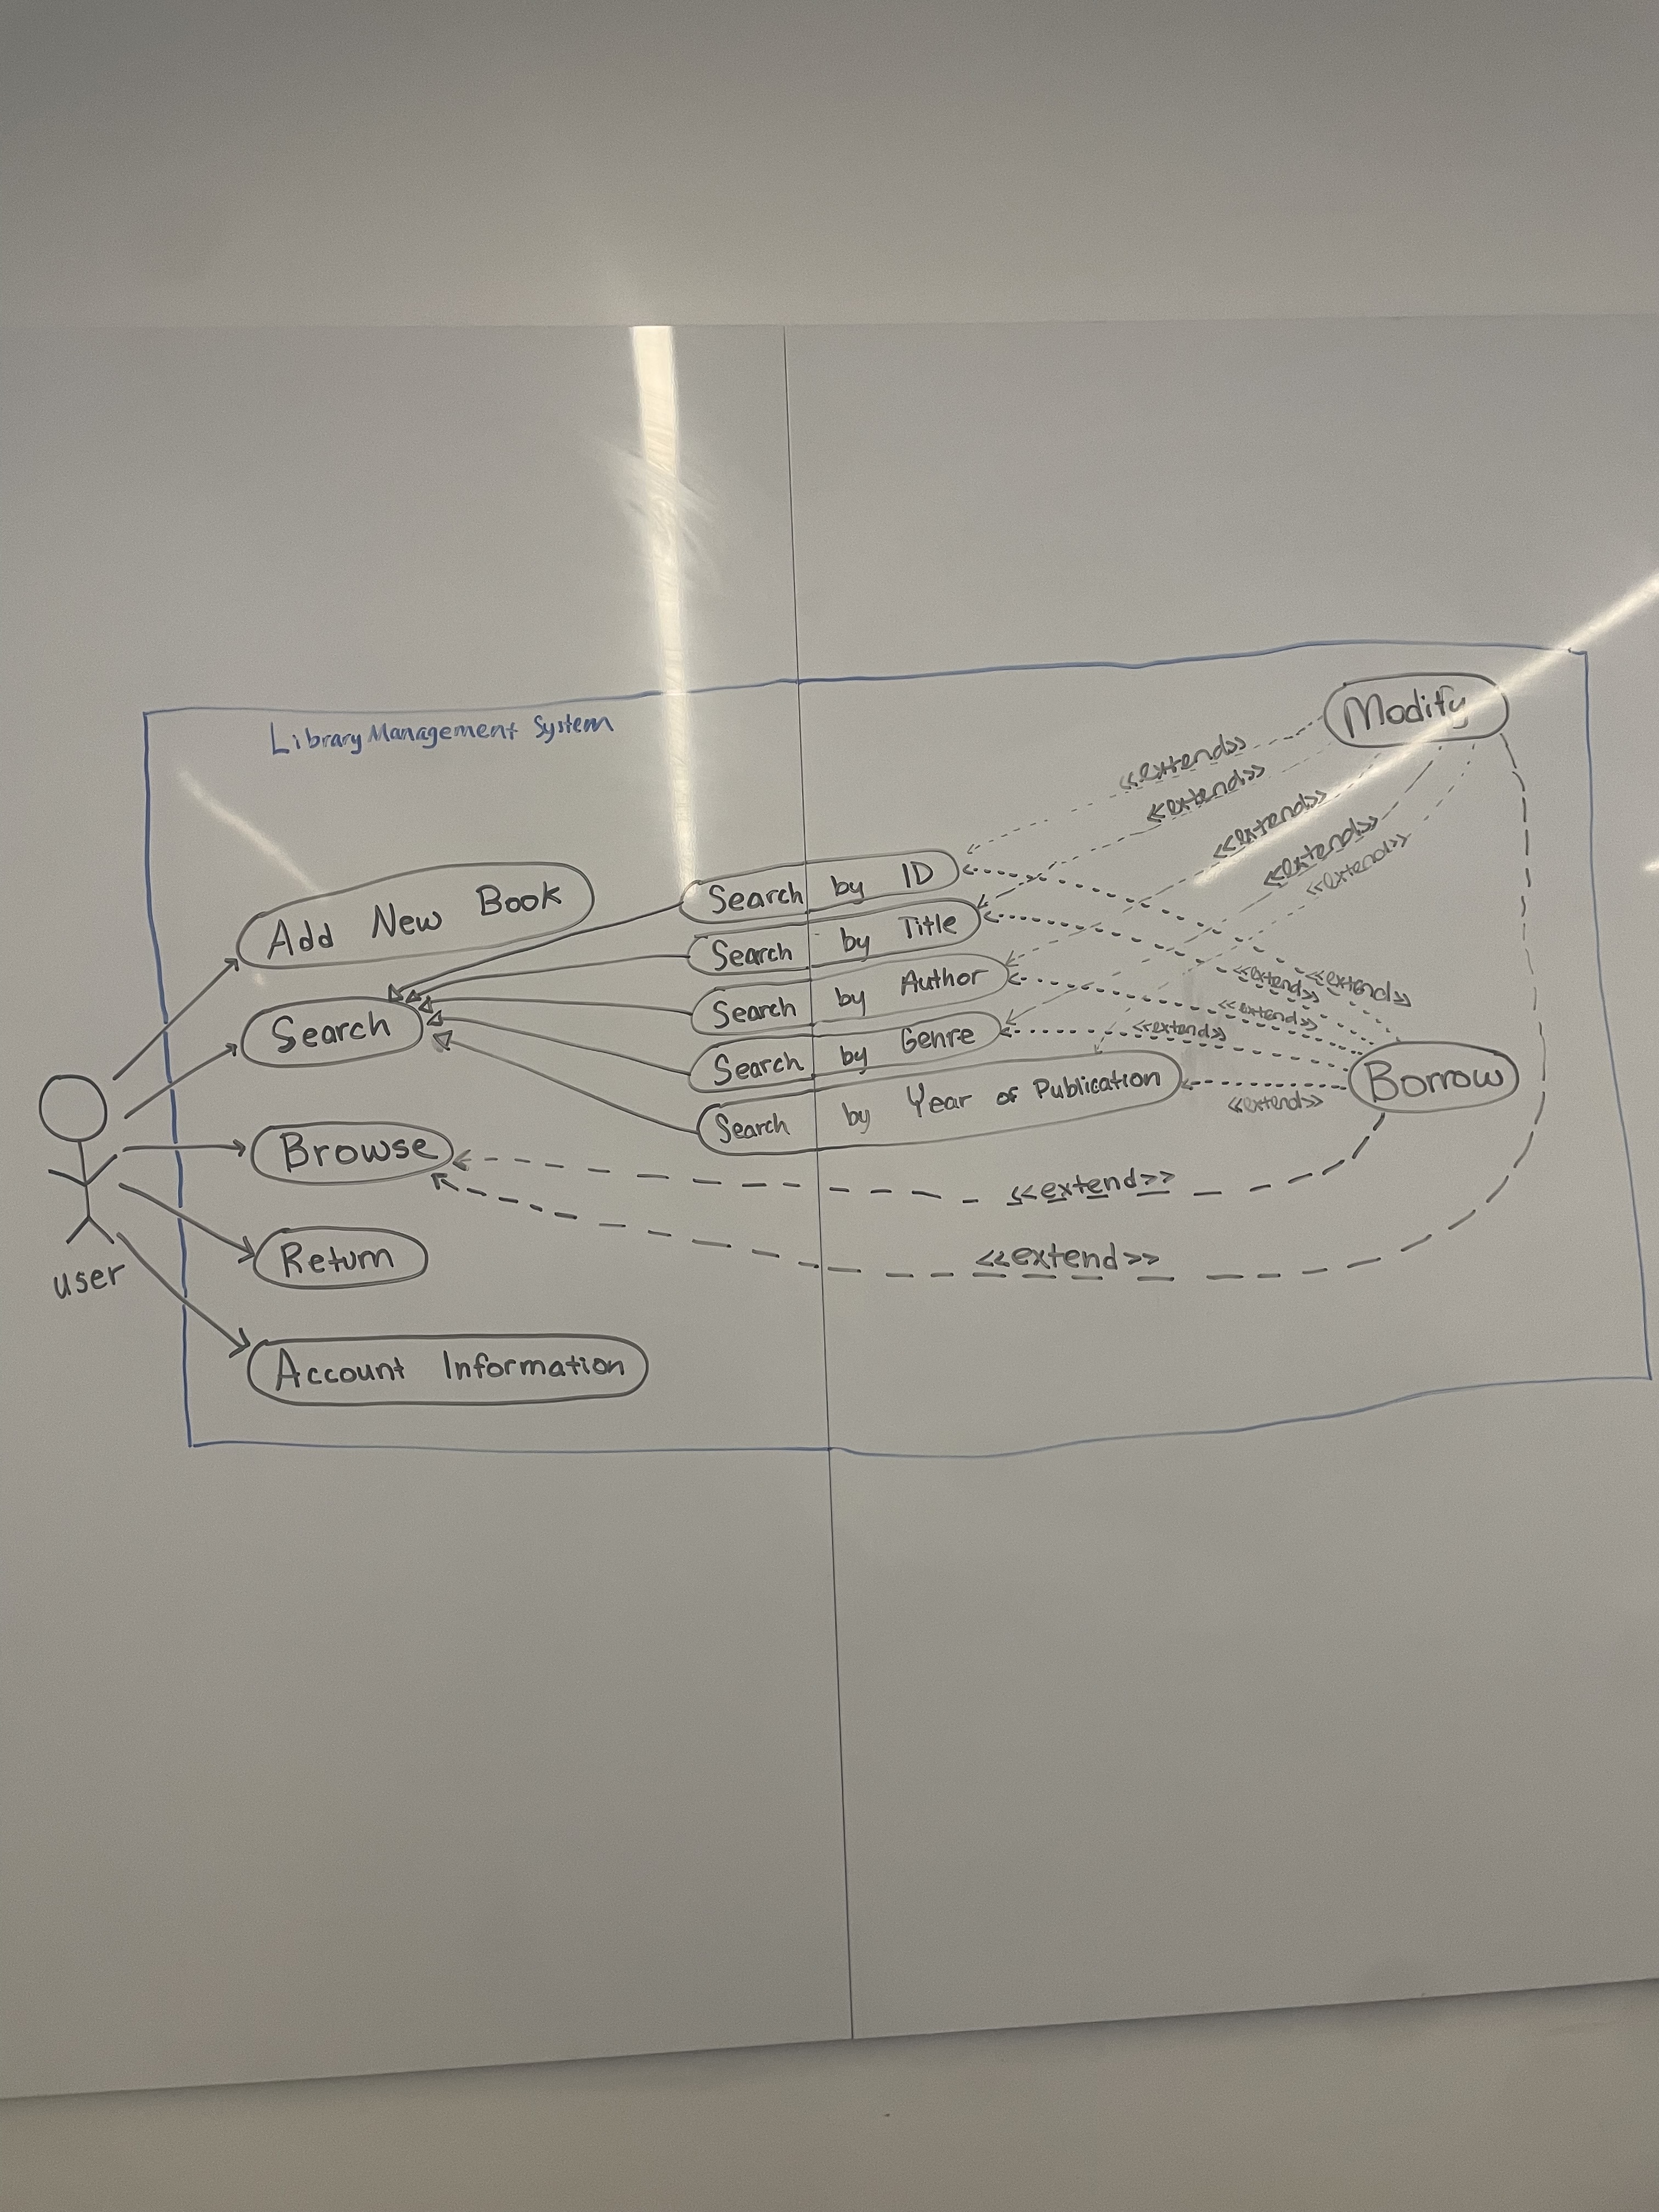 Library Management System
Modify
<<extend>>
<<extend>>
<<extend>>
<<extend>>
<<extend>>
Add New Book
Search by ID
Search by Title
Search by Author
Search by Genre
Search by Year of Publication
Search
<<extend>>
<<extend>>
<<extend>>
<<extend>>
<<extend>>
Borrow
Browse
<<extend>>
<<extend>>
Return
user
Account Information